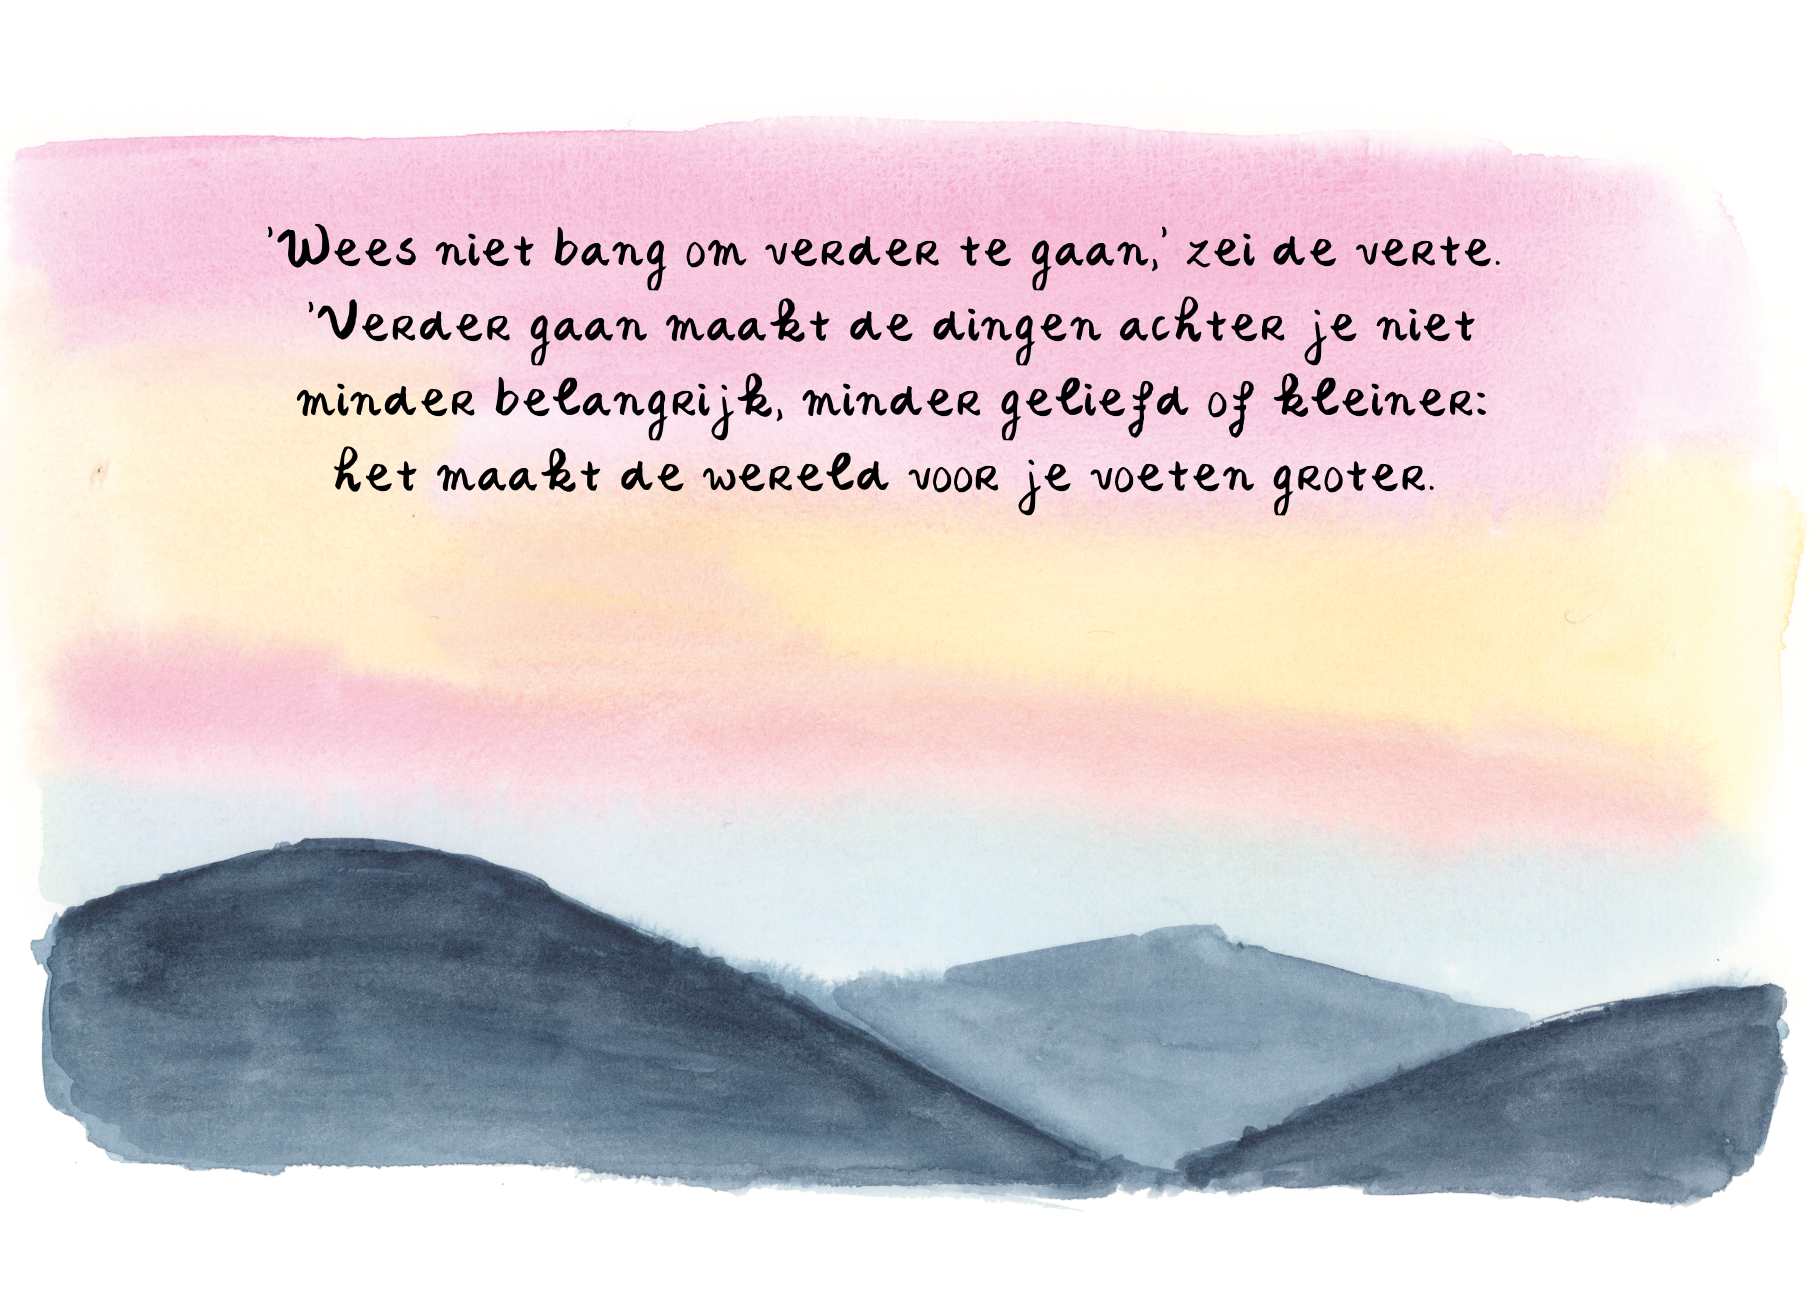 'Wees niet bang om verder te gaan,' zei de verte.
'Verder gaan maakt de dingen achter je niet
minder belangrijk, minder geliefd of kleiner:
het maakt de wereld voor je voeten groter.